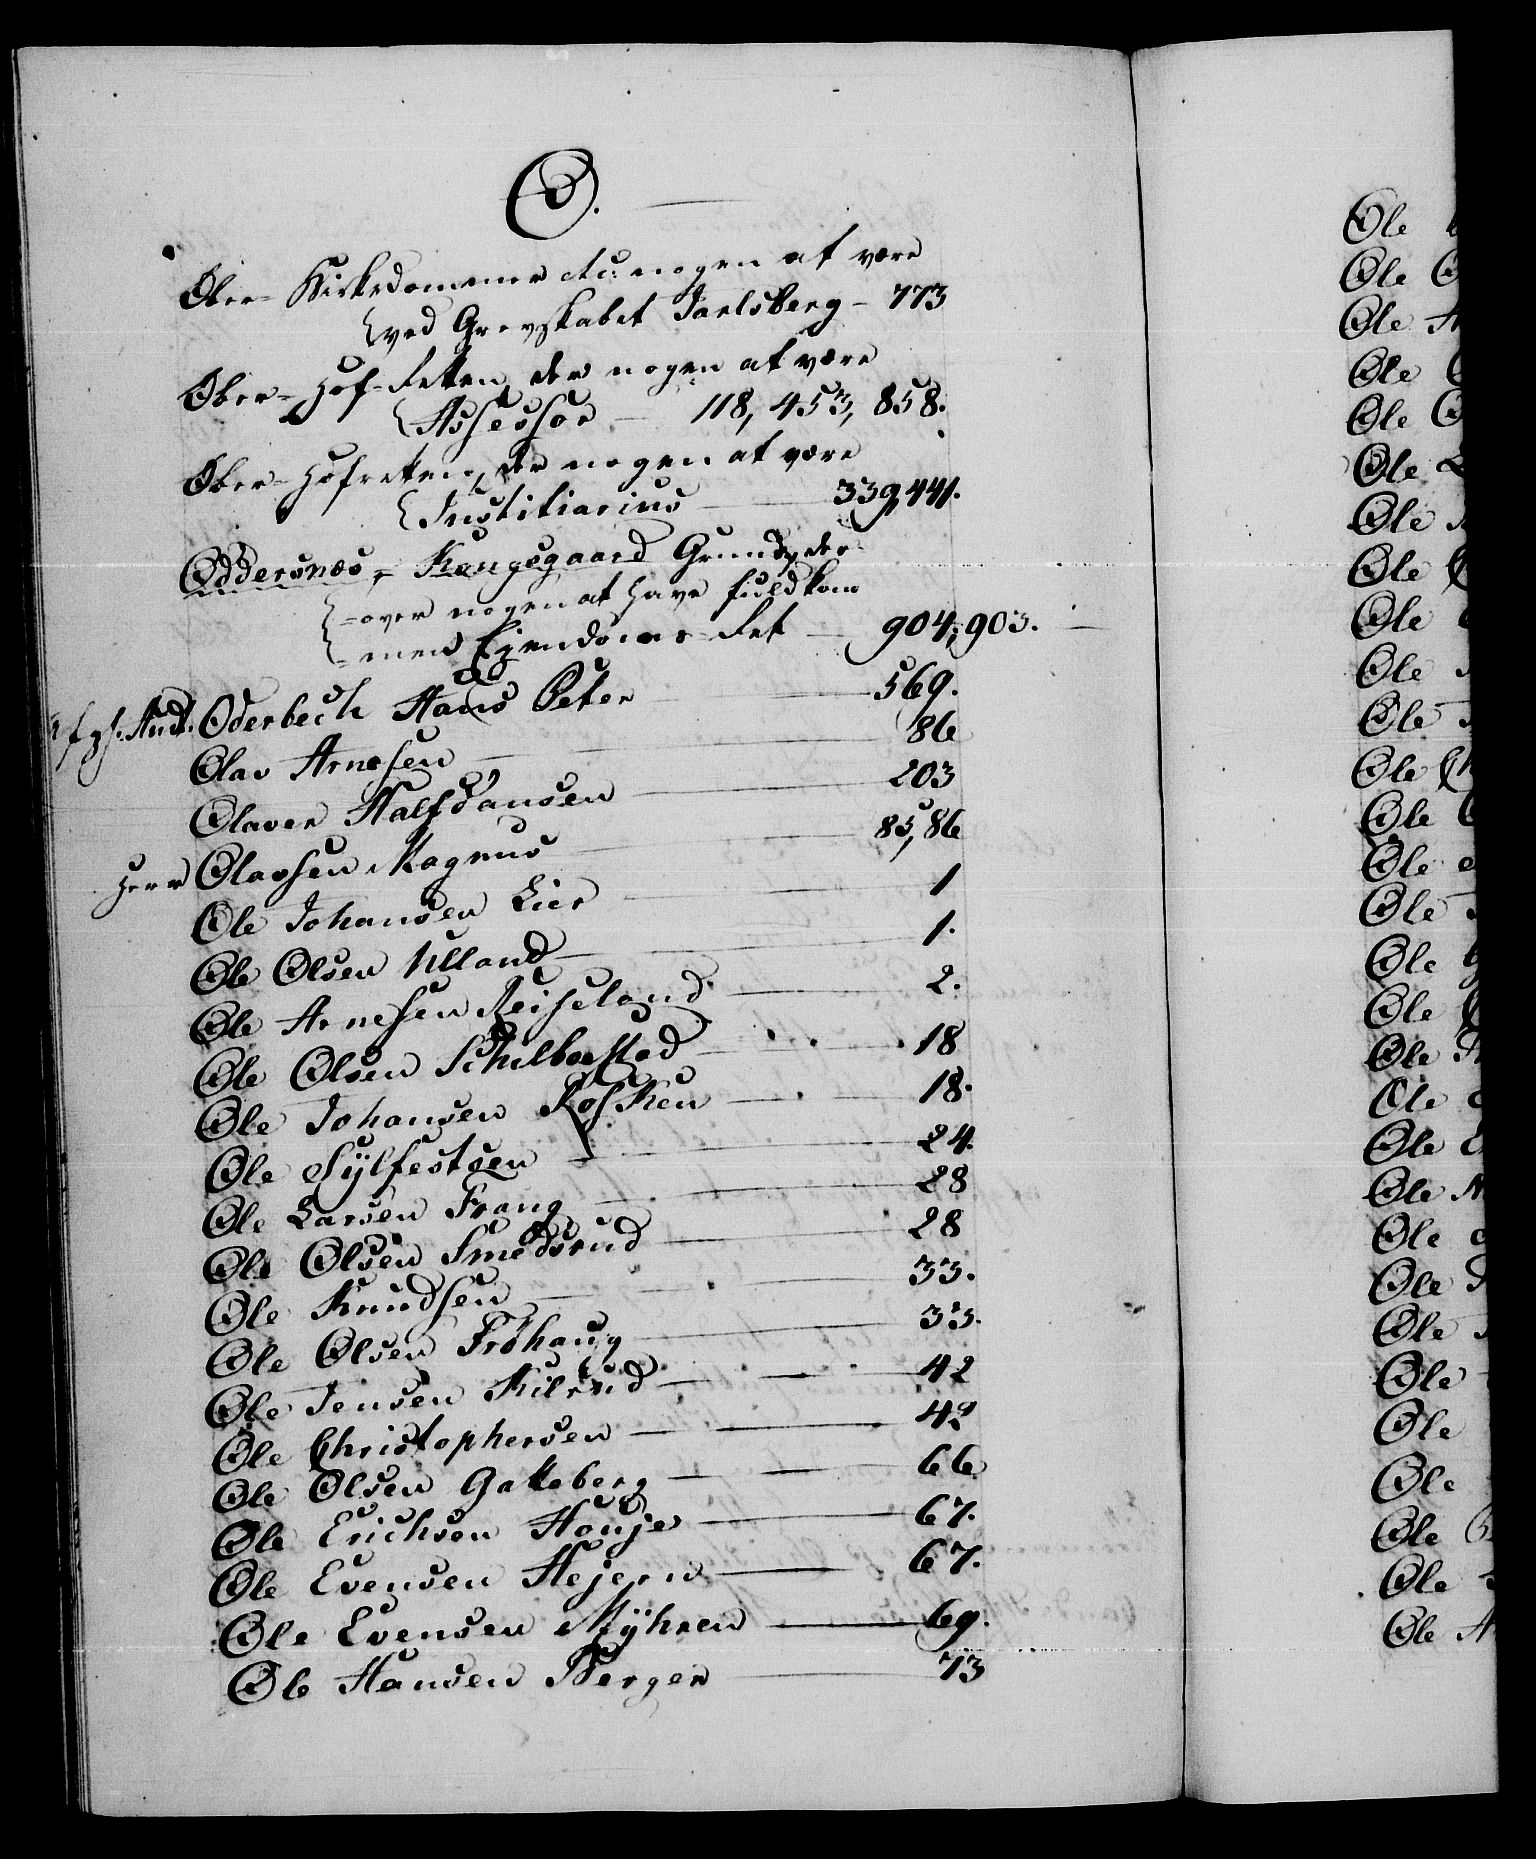 O.
Ober- Kirkedomener etc: nogen at være
ved Grevskabet Jarlsberg - 773
Ober- Hof-Retten, der nogen at være
Assessor - 118, 453, 858.
Ober- Hofretten, der nogen at være
Justitiarius - 339, 441.
Oddersnæs- Kongsgaard Grund, der-
-over nogen at have fuldkom
-men Ejendoms Ret - 904, 903.
Oderbech Hans Peter 569.
Olav Arnesen 86
Olaver Halfdansen 203
Herr Olavsen Magnus 85, 86
Ole Johansen Lier 1
Ole Olsen Ulland 1.
Ole Arnesen Reiseland 2.
Ole Olsen Schilboestad 18
Ole Johansen Kosken 18.
Ole Sylfestsen 24.
Ole Larsen Frang 28
Ole Olsen Smedsrud 28
Ole Knudsen 33.
Ole Olsen Frøhaug 33.
Ole Jensen Kilsrud 42
Ole Christophersen 42
Ole Olsen Gakeberg 66
Ole Erichsen Houje 67.
Ole Evensen Hejern 67.
Ole Evensen Myhren 69.
Ole Hansen Berger 73
Ole
Ole
Ole
Ole
Ole
Ole
Ole
Ole
Ole
Ole
Ole
Ole
Ole
Ole
Ole
Ole
Ole
Ole
Ole
Ole
Ole
Ole
Ole
Ole
Ole
Ole
Ole
Ole
Ole
Ole